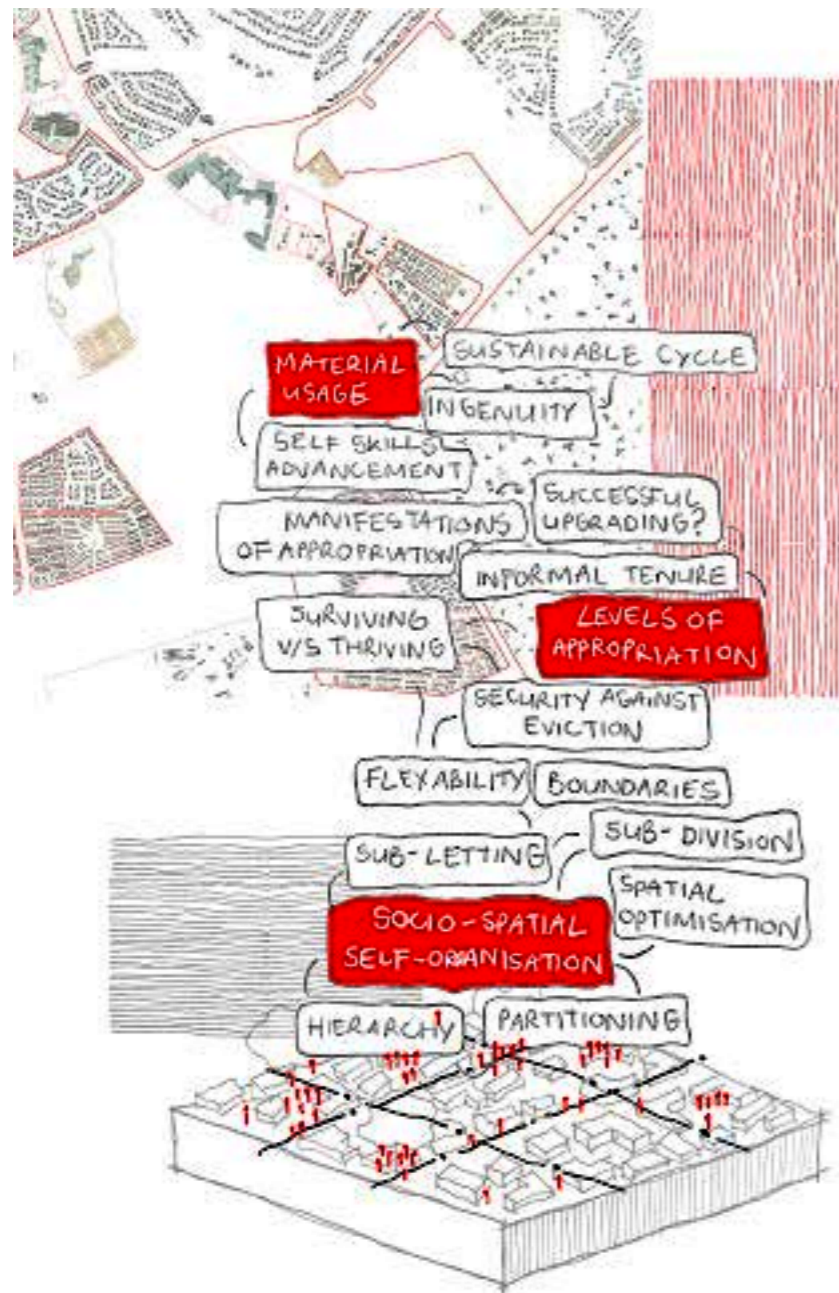 MATERIAL
USAGE
SUSTAINABLE CYCLE
INGENUITY
SELF SKILLS
ADVANCEMENT
SUCCESSFUL
UPGRADING?
MANIFESTATIONS
OF APPROPRIATION
INFORMAL TENURE
SURVIVING
V/S THRIVING
LEVELS OF
APPROPRIATION
SECURITY AGAINST
EVICTION
FLEXABILITY
BOUNDARIES
SUB-LETTING
SUB-DIVISION
SPATIAL
OPTIMISATION
SOCIO-SPATIAL
SELF-ORGANISATION
HIERARCHY
PARTITIONING